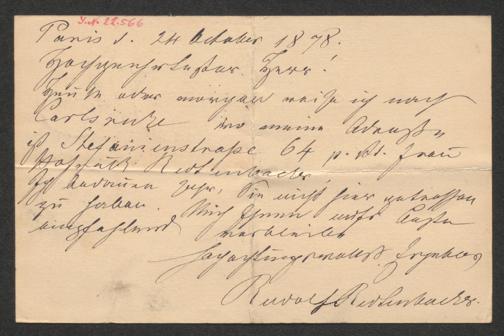 J.N. 22.566
Paris d. 24 October 1878.
Hochgeehrtester Herr!
Heute oder morgen reise ich nach
Carlsruhe wo meine Adresse
ist Stefanienstraße 64 p. Ad. Frau
Hofrath Redtenbacher.
Ich bedauere sehr, Sie nicht hier getroffen
zu haben. Mich Ihnen aufs Beste
empfehlend verbleibe
hochachtungsvollst Ergebenst
Rudolf Redtenbacher.